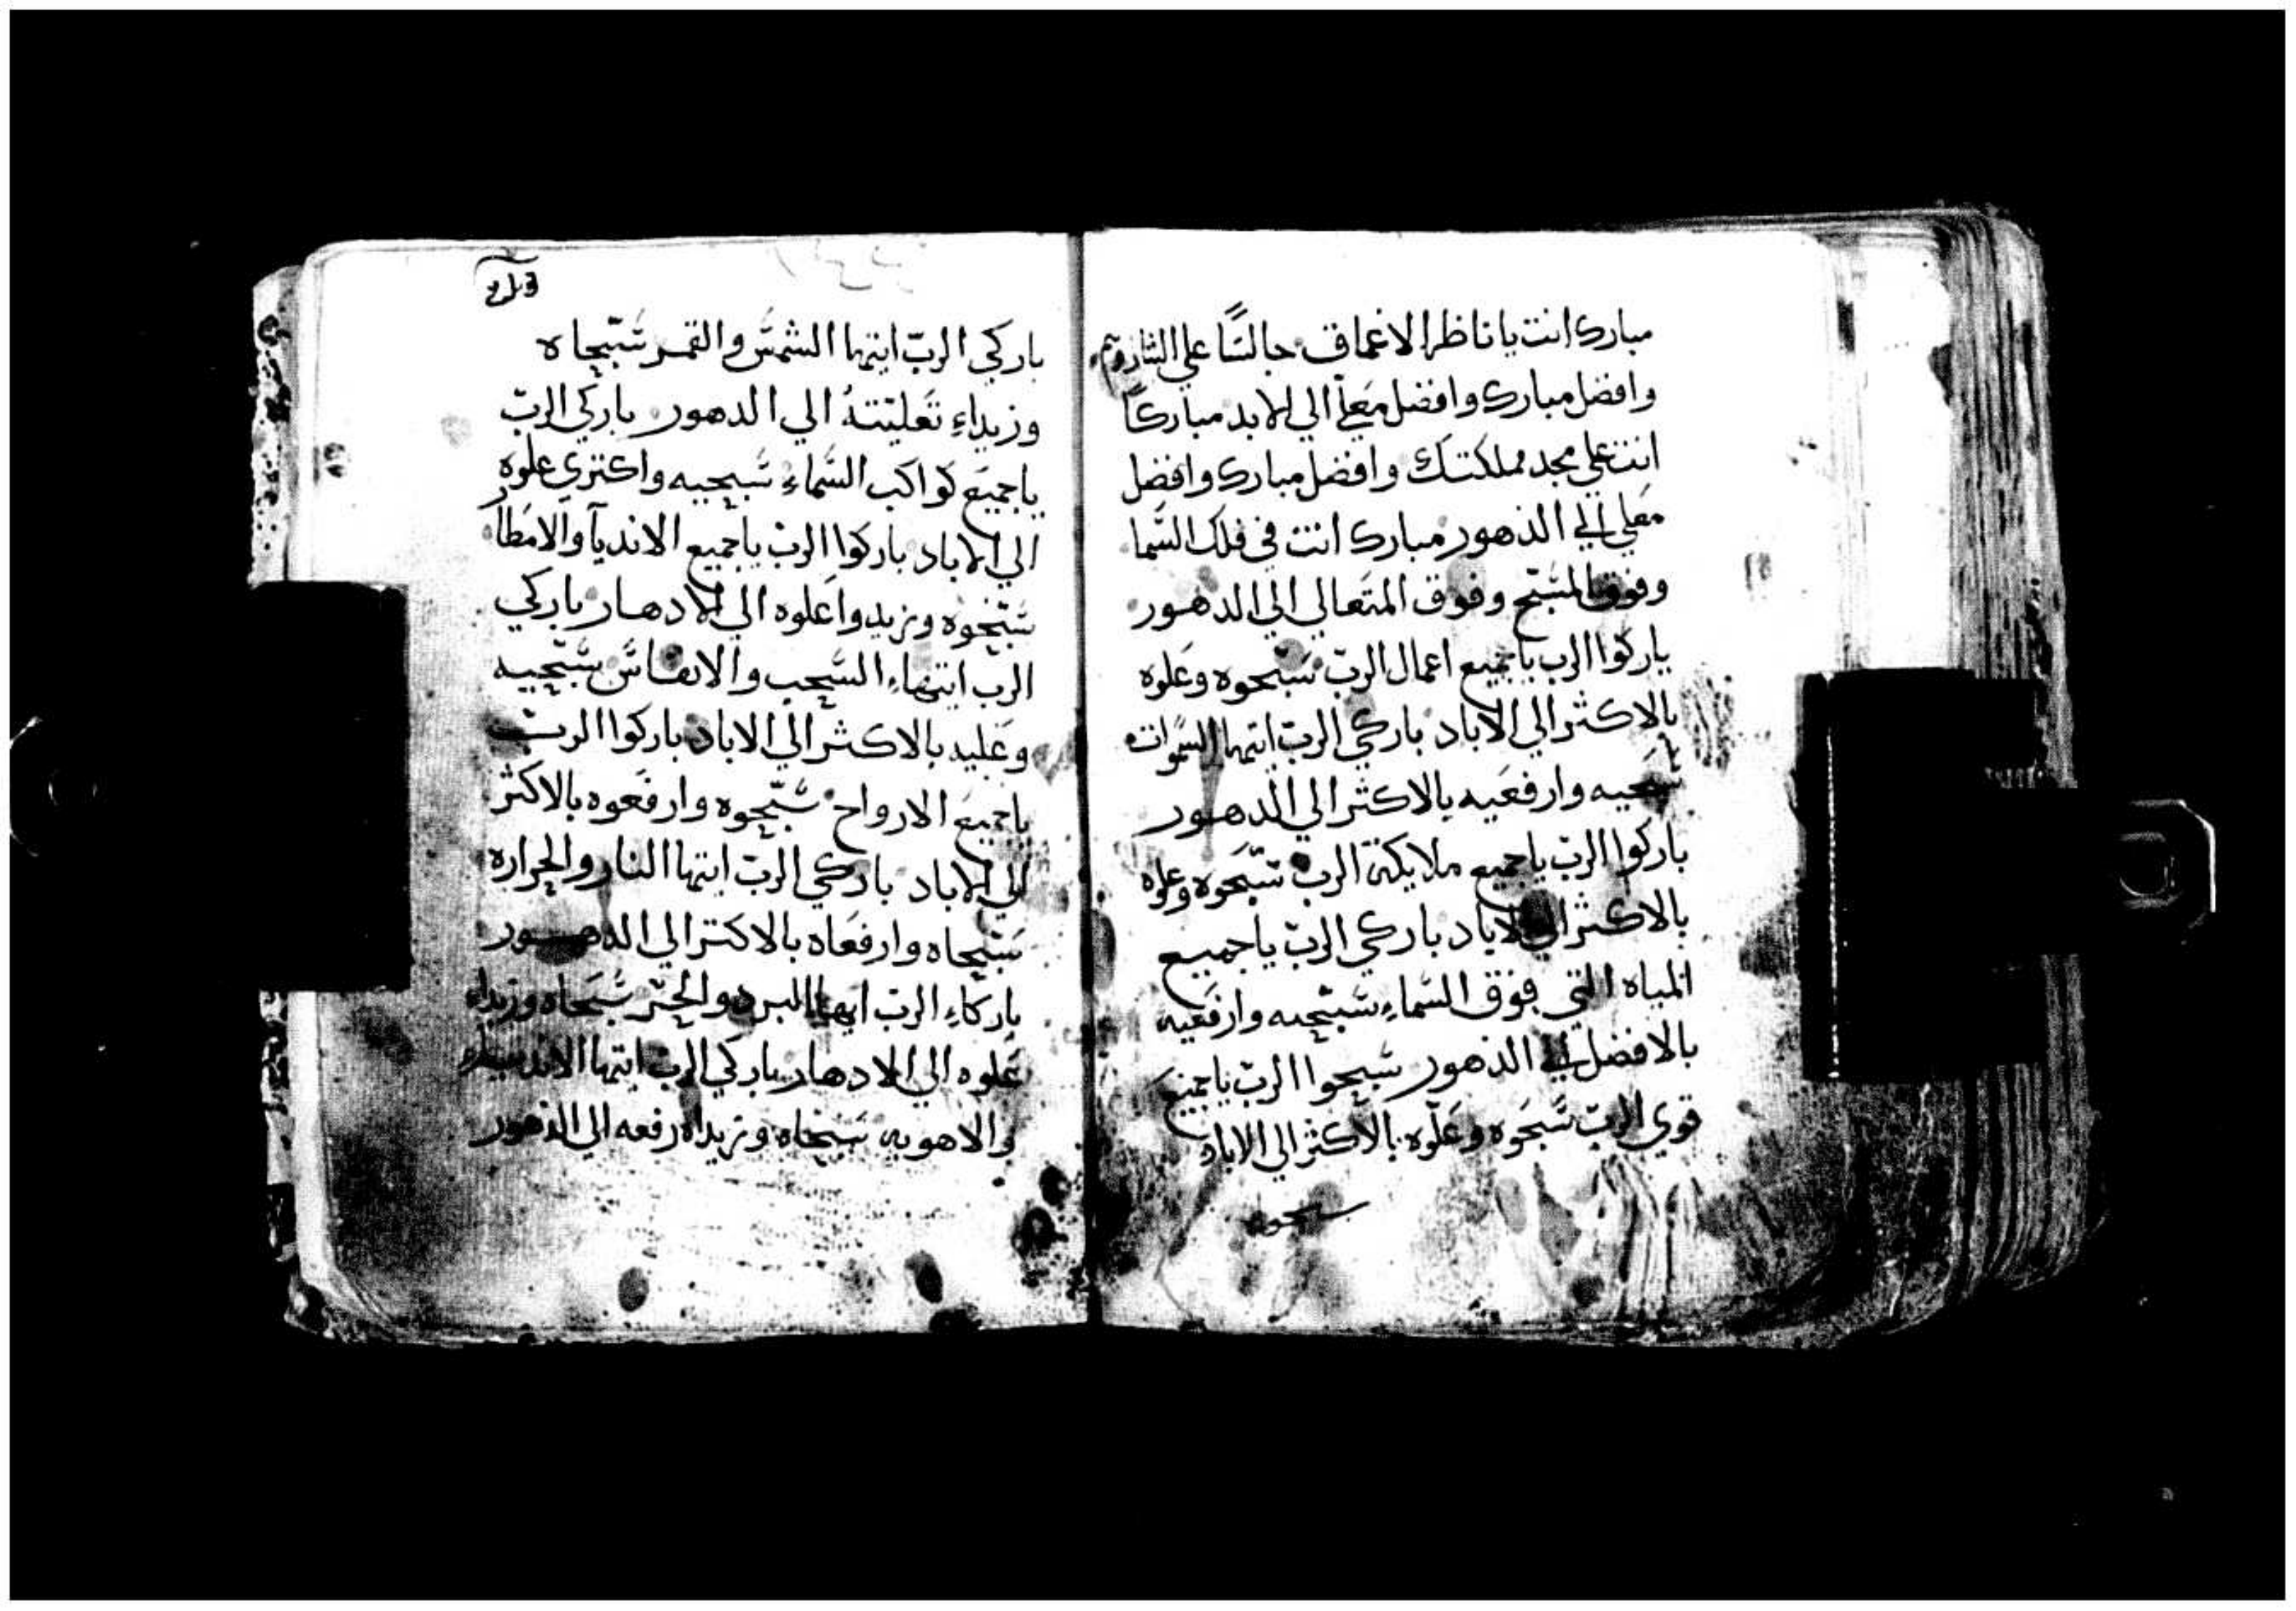 مبارك انت يا ناظر الاعماق جالسًا علي الشاروبيم
وافضل مبارك وافضل مَعلّي الي الابد مباركًا
انت علي مجد مملكتك وافضل مبارك وافضل
معلي الي الدهور مبارك انت في فلك السَّما
وفوق المسَبّح وفوق المتَعالي الي الدهور
باركوا الرب يا جميع اعمال الربّ سَبّحوه وعَلوه
بالاكثر الي الاباد باركي الربّ ايتها السَّموات
سَبحيه وارفعَيه بالاكثر الي الدهور
باركوا الربّ يا جميع ملايكة الرب سَبّحَوه وعلوه
بالاكثر الي الاباد باركي الربّ يا جميع
المياه التي فوق السَّماءِ سَبّحيه وارفَعيه
بالافضل الي الدهور سَبحوا الربّ يا جميعَ
قوي الربّ سَّبحَوه وعَلّوه بالاكثر الي الاباد
سبحوه
باركي الربّ ايتها الشمسَّ والقمر سَّبّحاه
وزيداءِ تَعليَتهُ الي الدهور باركي الربّ
يا جميَع كَواكب السَّماءِ سَّبحيه واكتري علوه
الي الاباد باركوا الربّ يا جميع الانديآ والامَطار
سَبّحوه وزيدوا عَلوه الي الادهار باركي
الرب ايتهاءِ السَّحب والانفاسَّ سَّبّحيه
وعَليه بالاكثر الي الاباد باركوا الربّ
يا جميعَ الارواح سَّبّحوه وارفَعوه بالاكثر
الي الاباد باركي الربّ ايتها النار والحراره
سَبّحاه وارفعَاه بالاكتر الي الدهور
باركاءِ الربّ ايها البرد والحَرّ سَّبحَاه وزيداءِ
عَلوه الي الادهار باركي الربّ ايتها الانديه
والاهويه سَبحاه وزيداه رفعه الي الدهور